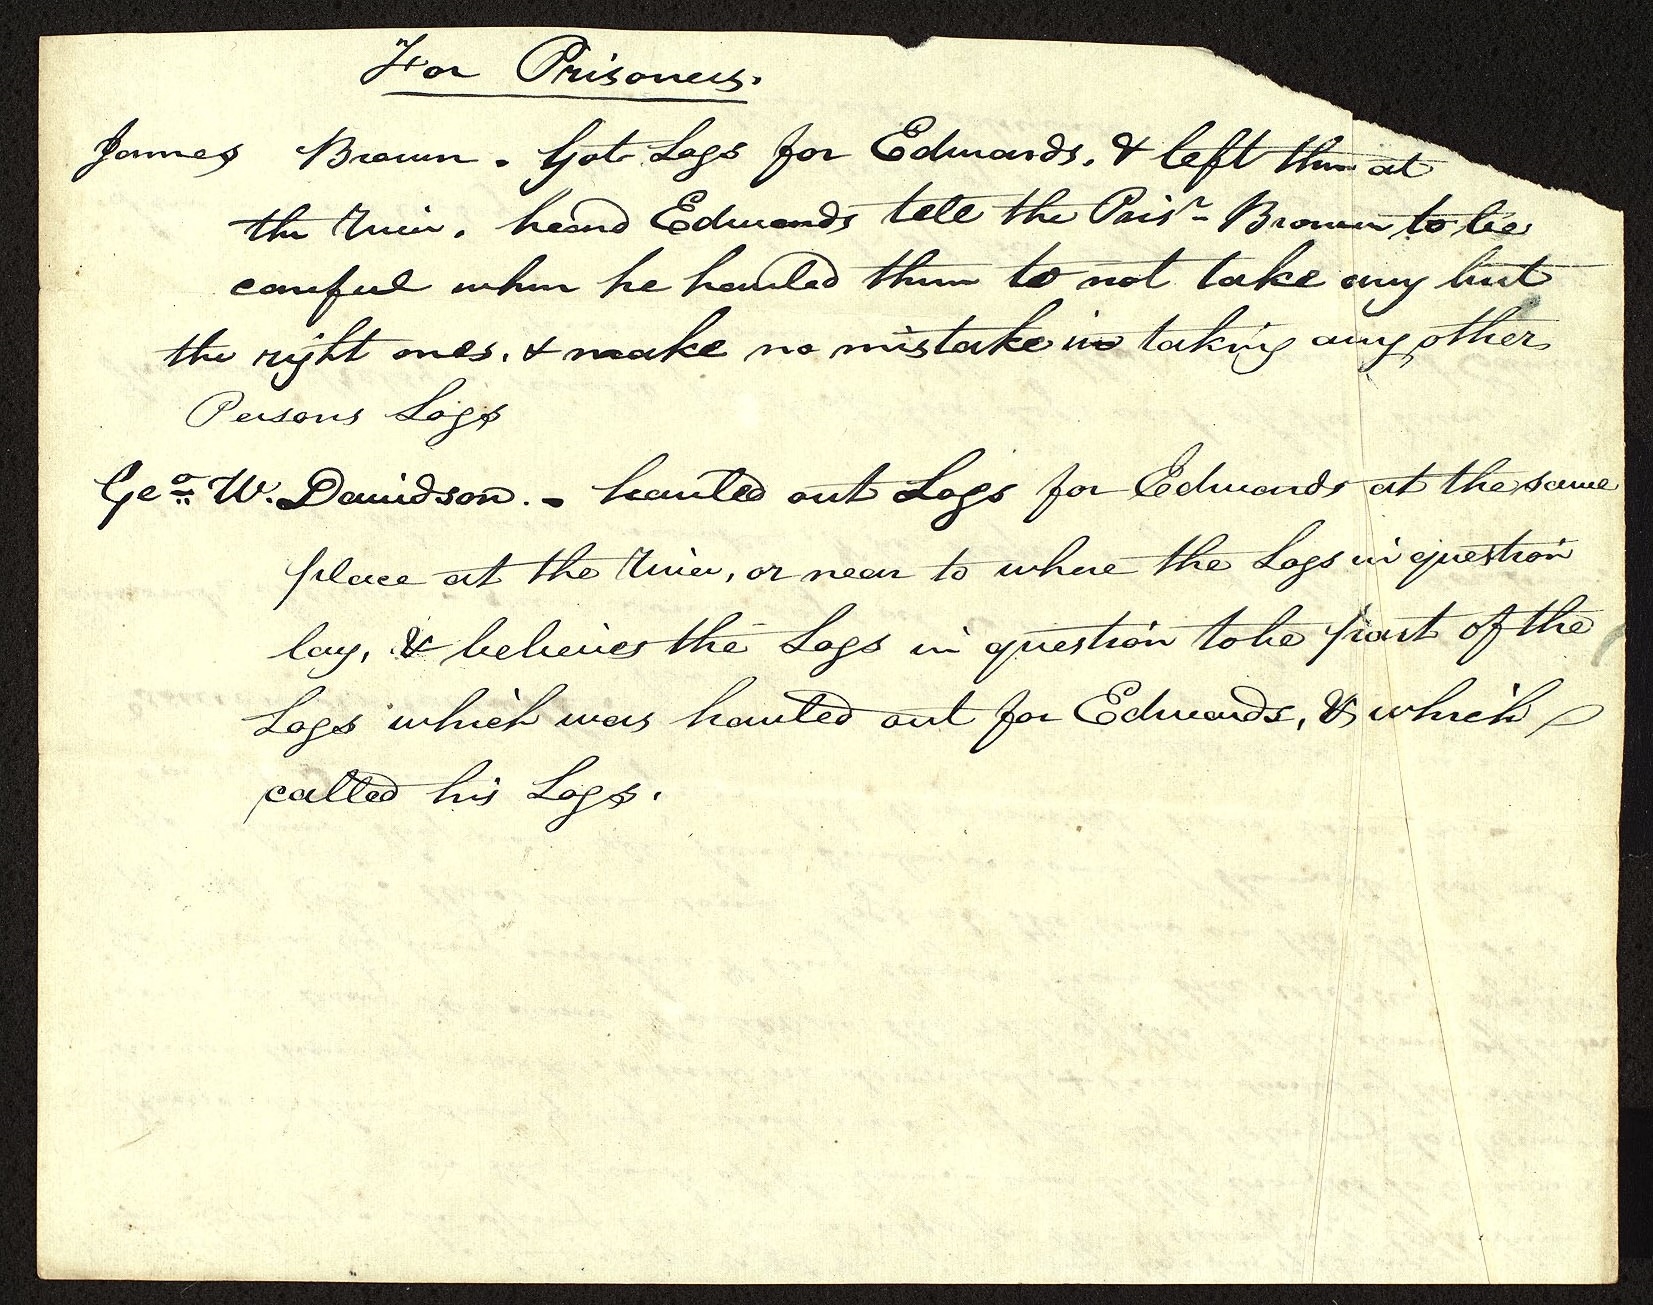 For Prisoners.
James Brown. Got Logs for Edwards. & left them at
the River. heard Edwards tell the Prisr Brown to be
careful when he hauled them to not take any but
the right ones. & make no mistake in taking any other
Persons Logs
Geo. W. Davidson. - hauled out Logs for Edwards at the same
place at the River, or near to where the Logs in question
lay, & believes the Logs in question to be part of the
Logs which was hauled out for Edwards, & which
called his Logs.